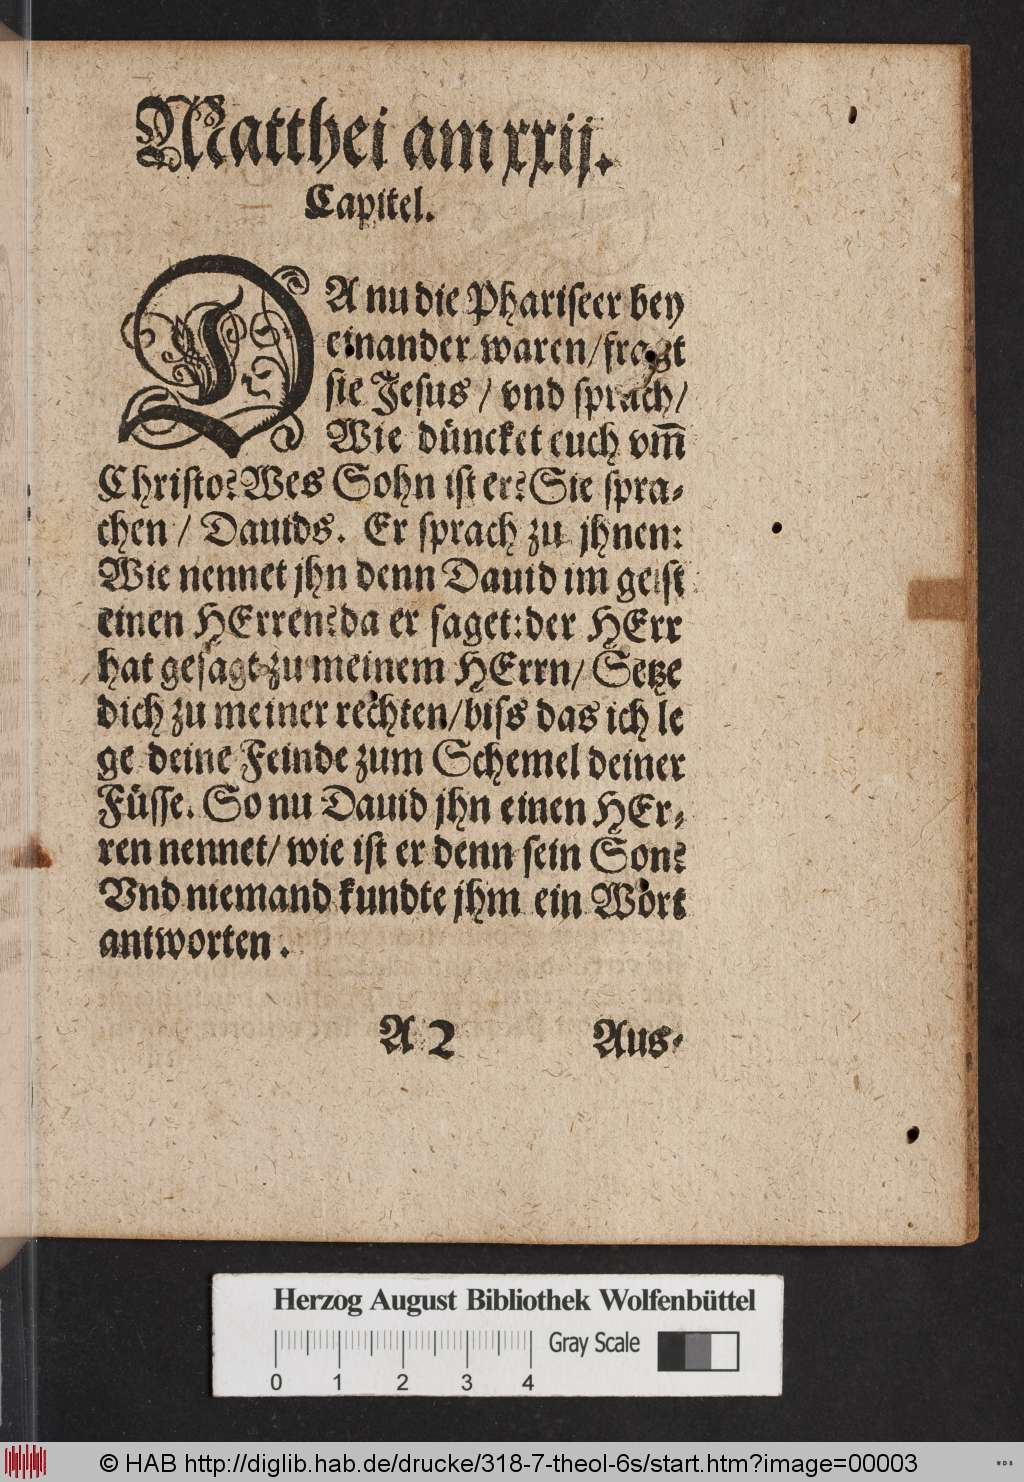 Matthei am xxij.
Capitel.
DA nu die Phariseer bey
einander waren/fragt
sie Jesus / vnd sprach/
Wie düncket euch vm̃
Christo? Wes Sohn ist er? Sie spra-
chen / Dauids. Er sprach zu jhnen:
Wie nennet jhn denn Dauid im geist
einen HErren? da er saget: der HErr
hat gesagt zu meinem HErrn/ Setze
dich zu meiner rechten/biss das ich le
ge deine Feinde zum Schemel deiner
Füsse. So nu Dauid jhn einen HEr-
ren nennet/ wie ist er denn sein Son?
Vnd niemand kundte jhm ein Wort
antworten.
A 2 Aus-
Herzog August Bibliothek Wolfenbüttel
Gray Scale
0 1 2 3 4
© HAB http://diglib.hab.de/drucke/318-7-theol-6s/start.htm?image=00003
WDB